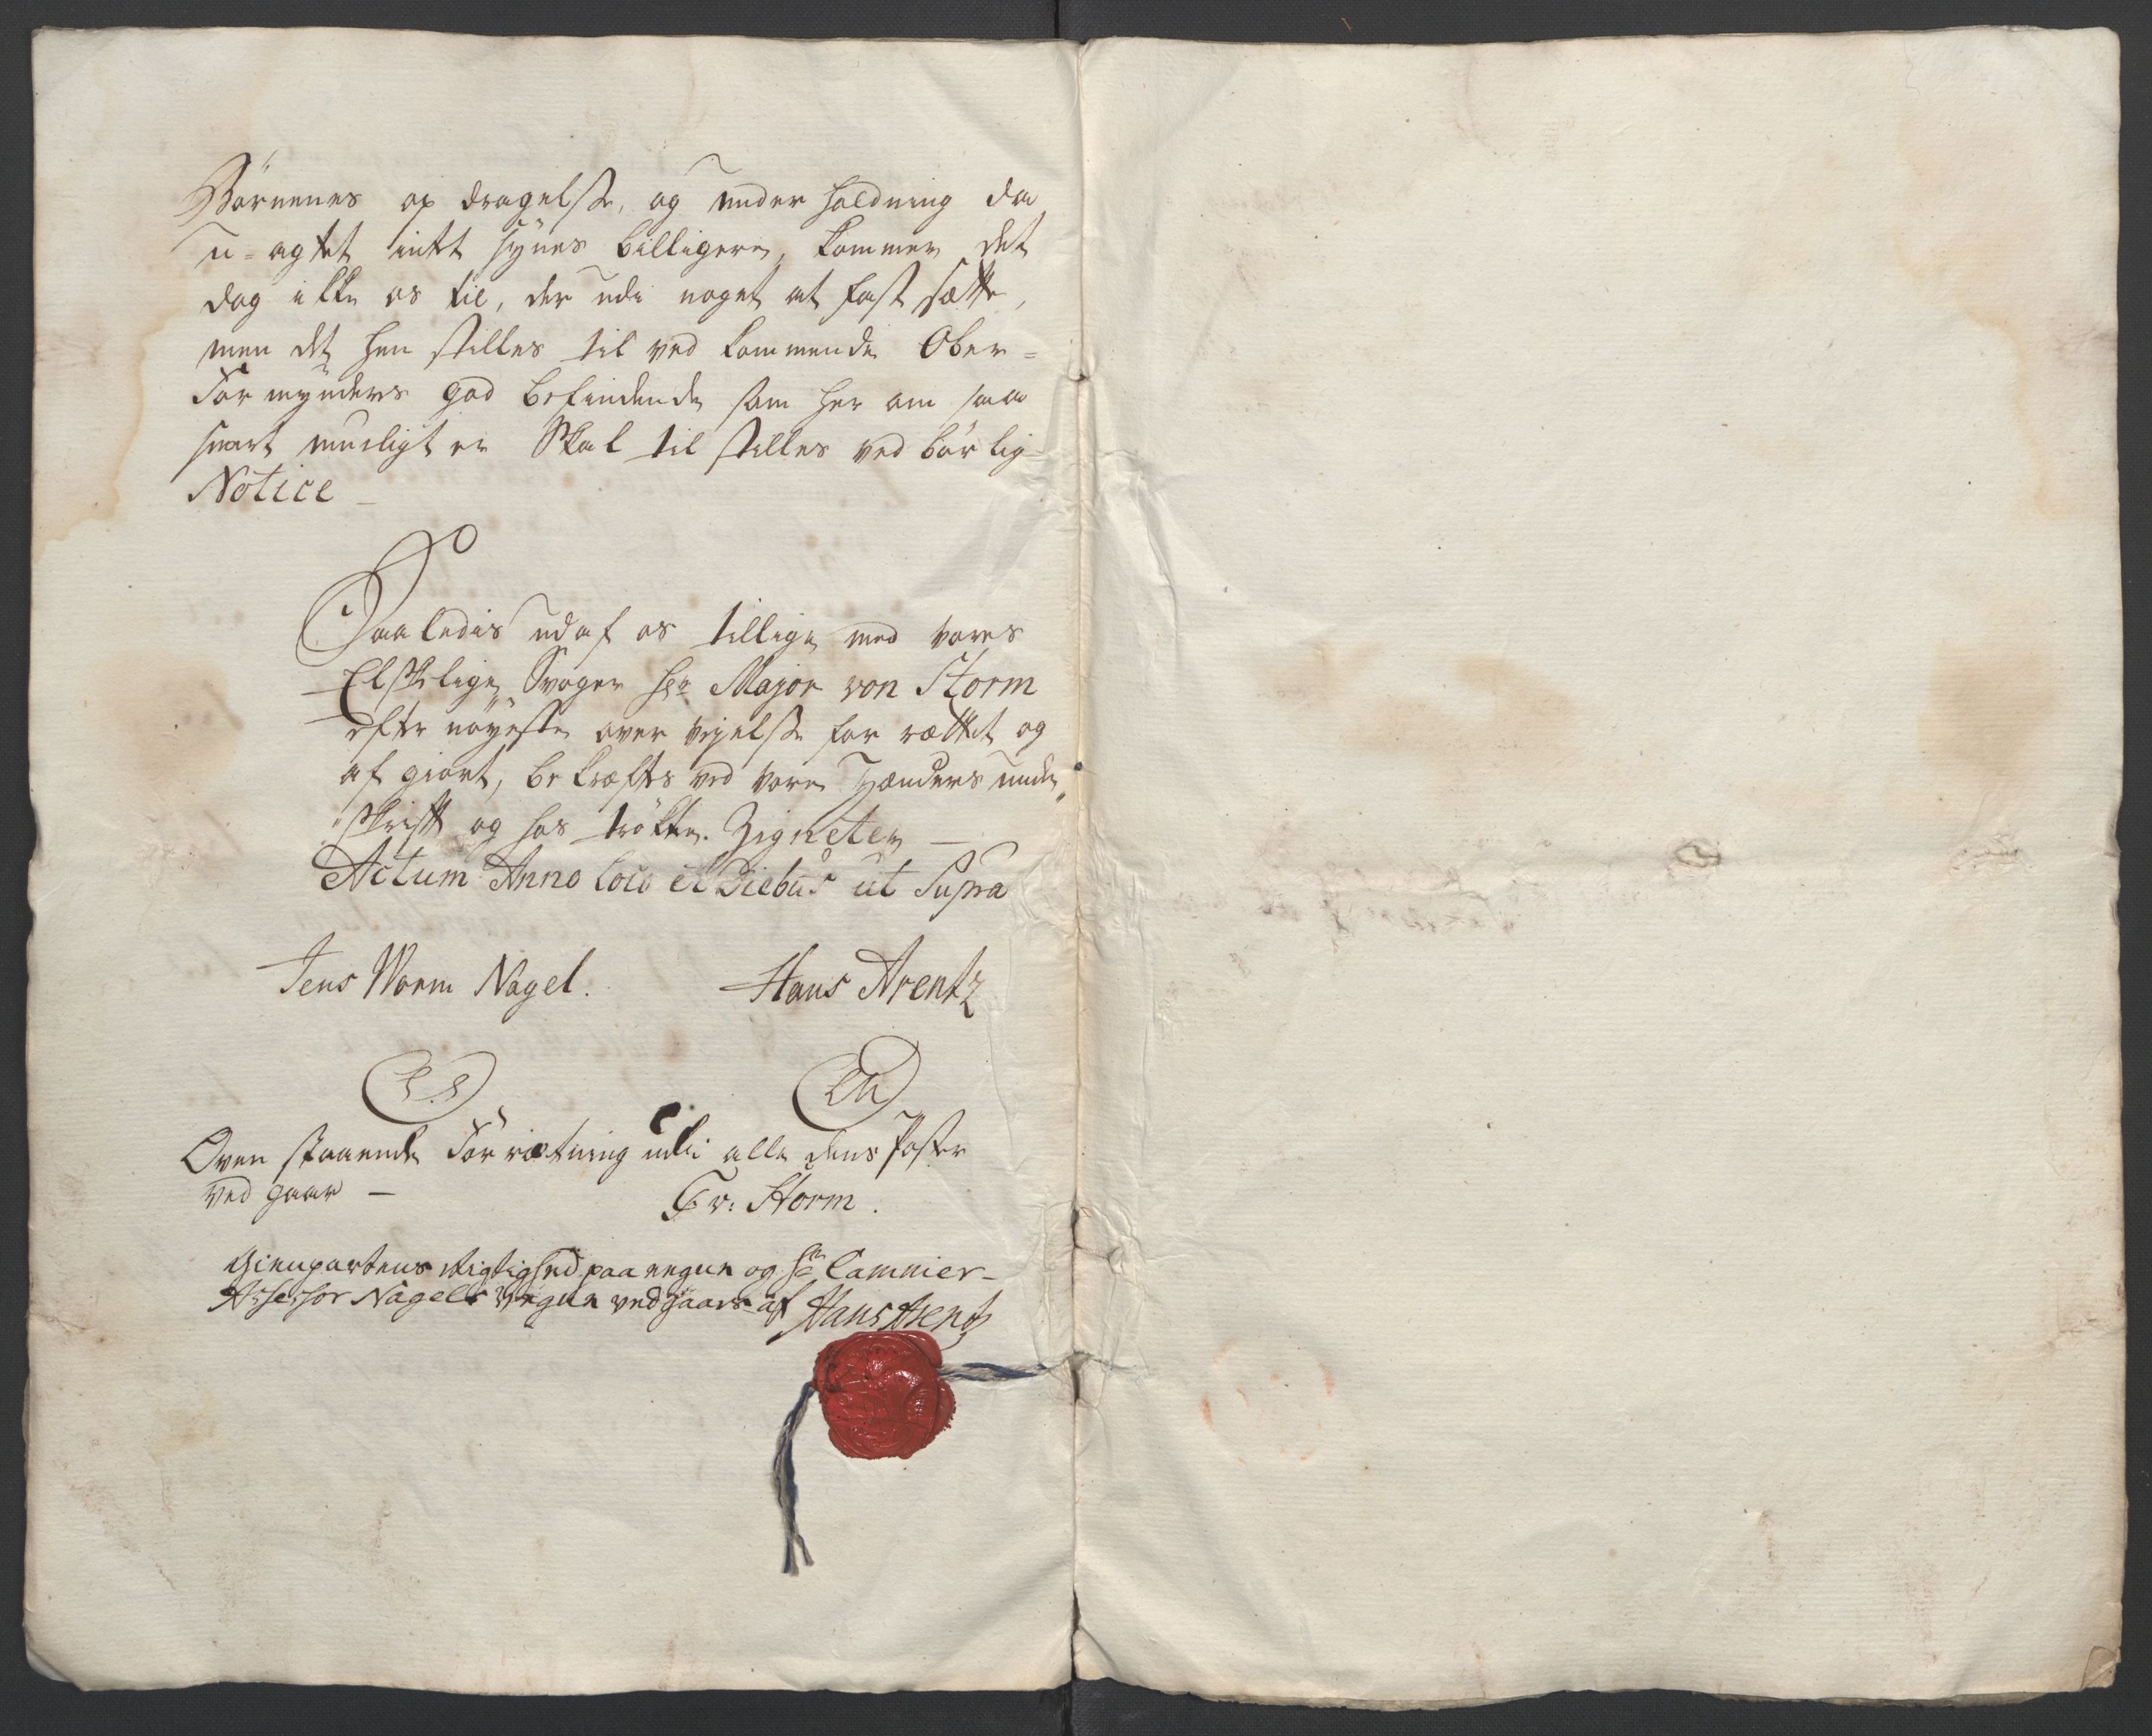 Börnenes op dragelse, og under holdning da
u-agtet intet synes billigere, kommer det
dog ikke os til, der udi noget at fast sætte,
men det hen stilles til ved kommende Ober=
Formynders god befindende som her om saa
snart mueligt er Skal til stilles ved börlig
Notice
Saaledes udaf os tillige med vores
Elskelige Svoger Hr Major von Storm
efter nöyeste over veyelse for rættet og
af giort, be kræftes ved vore Hænders under
skrift og hos trökte Zigneter
Actum Anno Loco et Diebus ut Supra
Jens Worm Nagel. Hans Arentz
L.S
Oven staaende Forrætning udi alle dens Poster
ved gaar — Fr: Storm.
Gienpartens Rigtighed paa egen og Hr Cammer-
Assessor Nagels vegne vedgaars af Hans Arentz